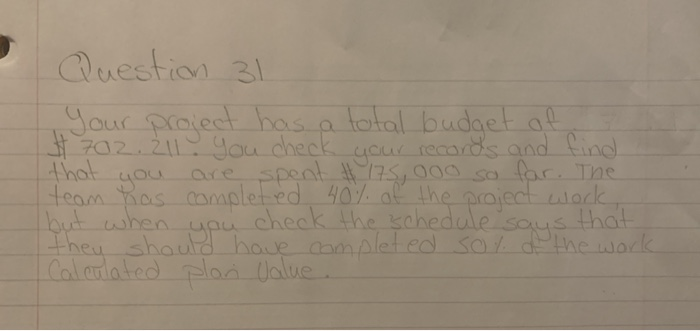 Question 31
Your project has a total budget of
$ 702.211. You check your records and find
that you are spent $ 175,000 so far. The
team has completed 40% of the project work,
but when you check the schedule says that
they should have completed 50% of the work
Calculated plan Value.